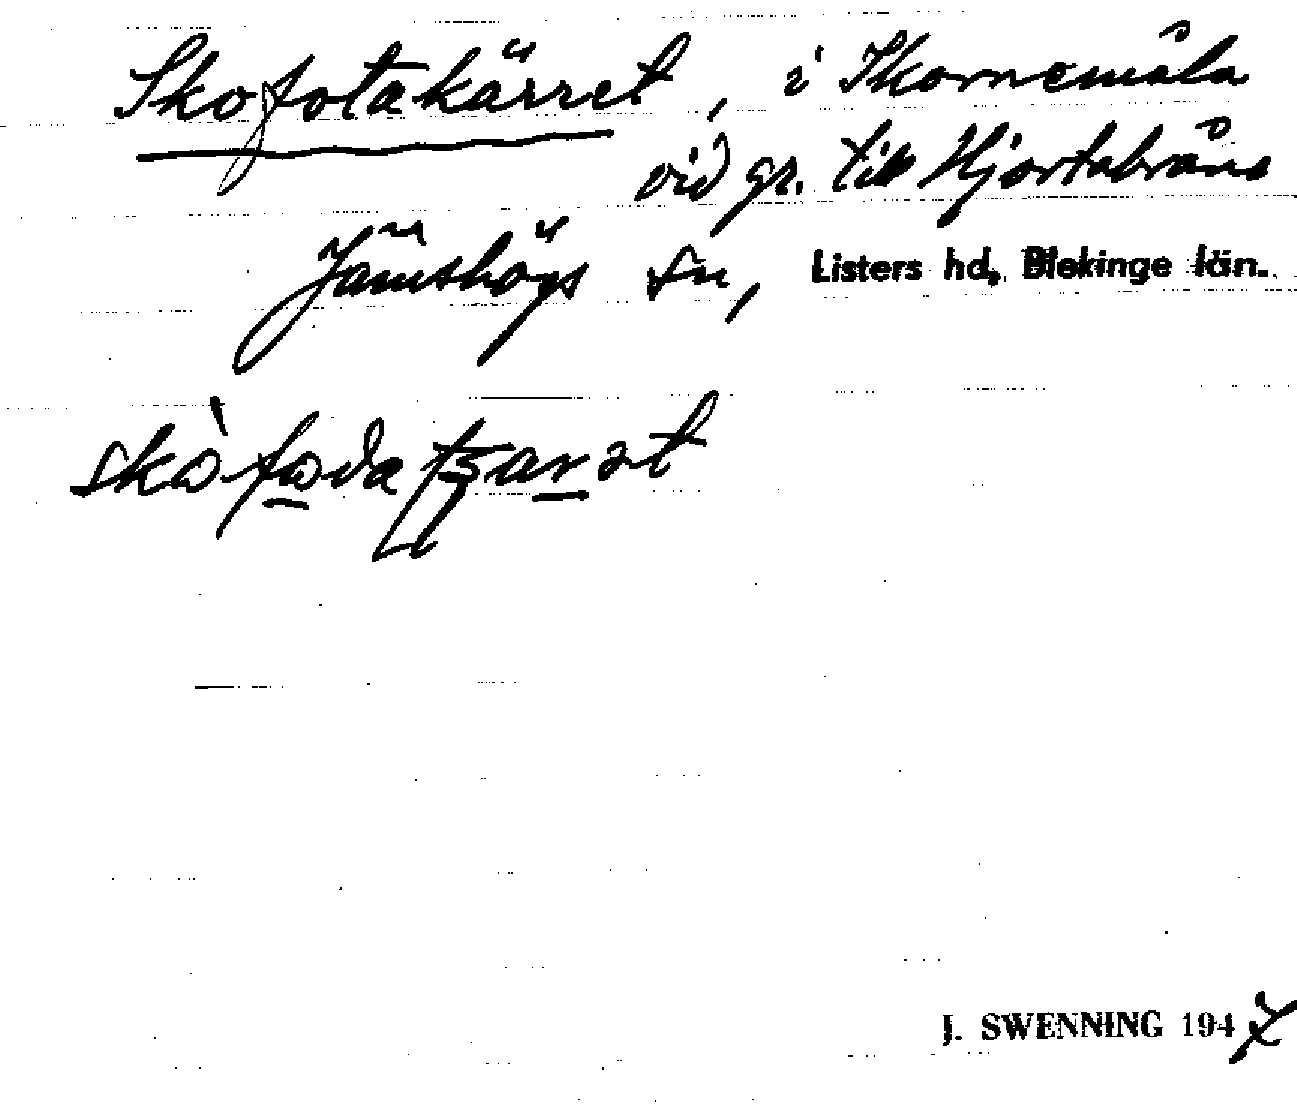 Skofotakärret, i Skornemåla
vid gr. till Hjortabråna
Jämshögs sn, Listers hd, Blekinge län.
J. SWENNING 1947